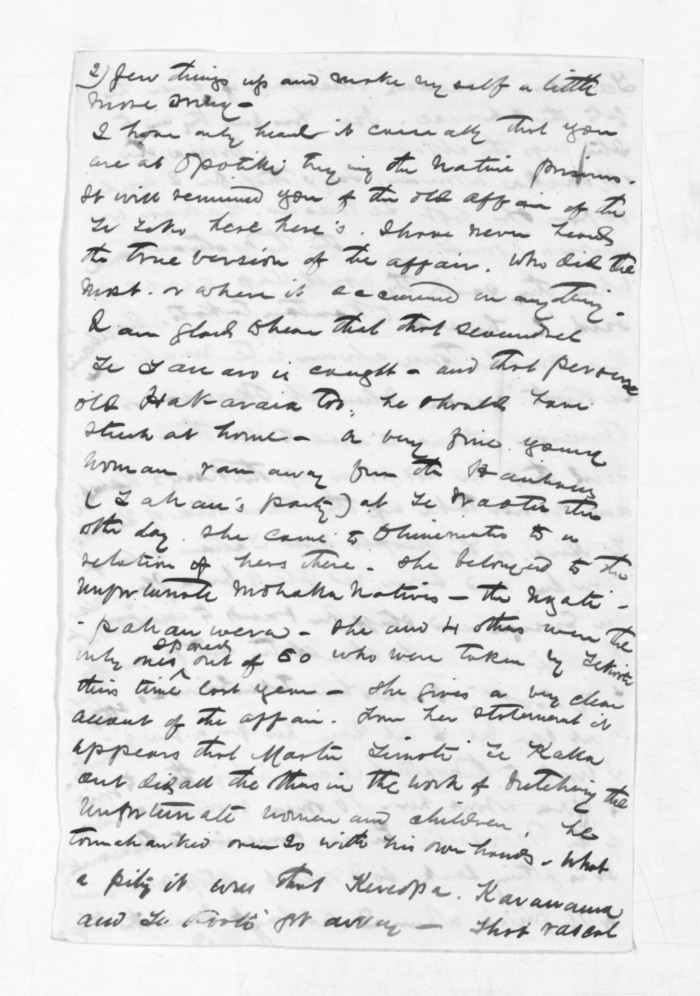 2) few things up and make myself a little
more snug -
I have only heard it casually that you
are at Opotiki trying the Native prisoners.
It will remind you of the old affair of the
Te here's. I have never heard
the true version of the affair. Who did the
most. or where it occurred or anything -
I am glad to hear that that scoundrel
Te is caught - and that perverse
old Hakaraia too, he should have
stuck at home - A very fine young
woman ran away from the Hauhaus
( party) at Te the
other day. She came to Ohinemutu to a
relation of hers there. She belonged to the
unfortunate Mohaka Natives - the Ngati-
-pahauwera - She and 4 others were the
only ones spared out of 60 who were taken by Te Kooti
this time last year - She gives a very clear
account of the affair. From her statement it
appears that Master Timoti Te Kaka
out did all the others in the work of butchering the
unfortunate women and children, he
tomahawked over 20 with his own hands - What
a pity it was that Kereopa.
and Te Kooti got away - That rascal